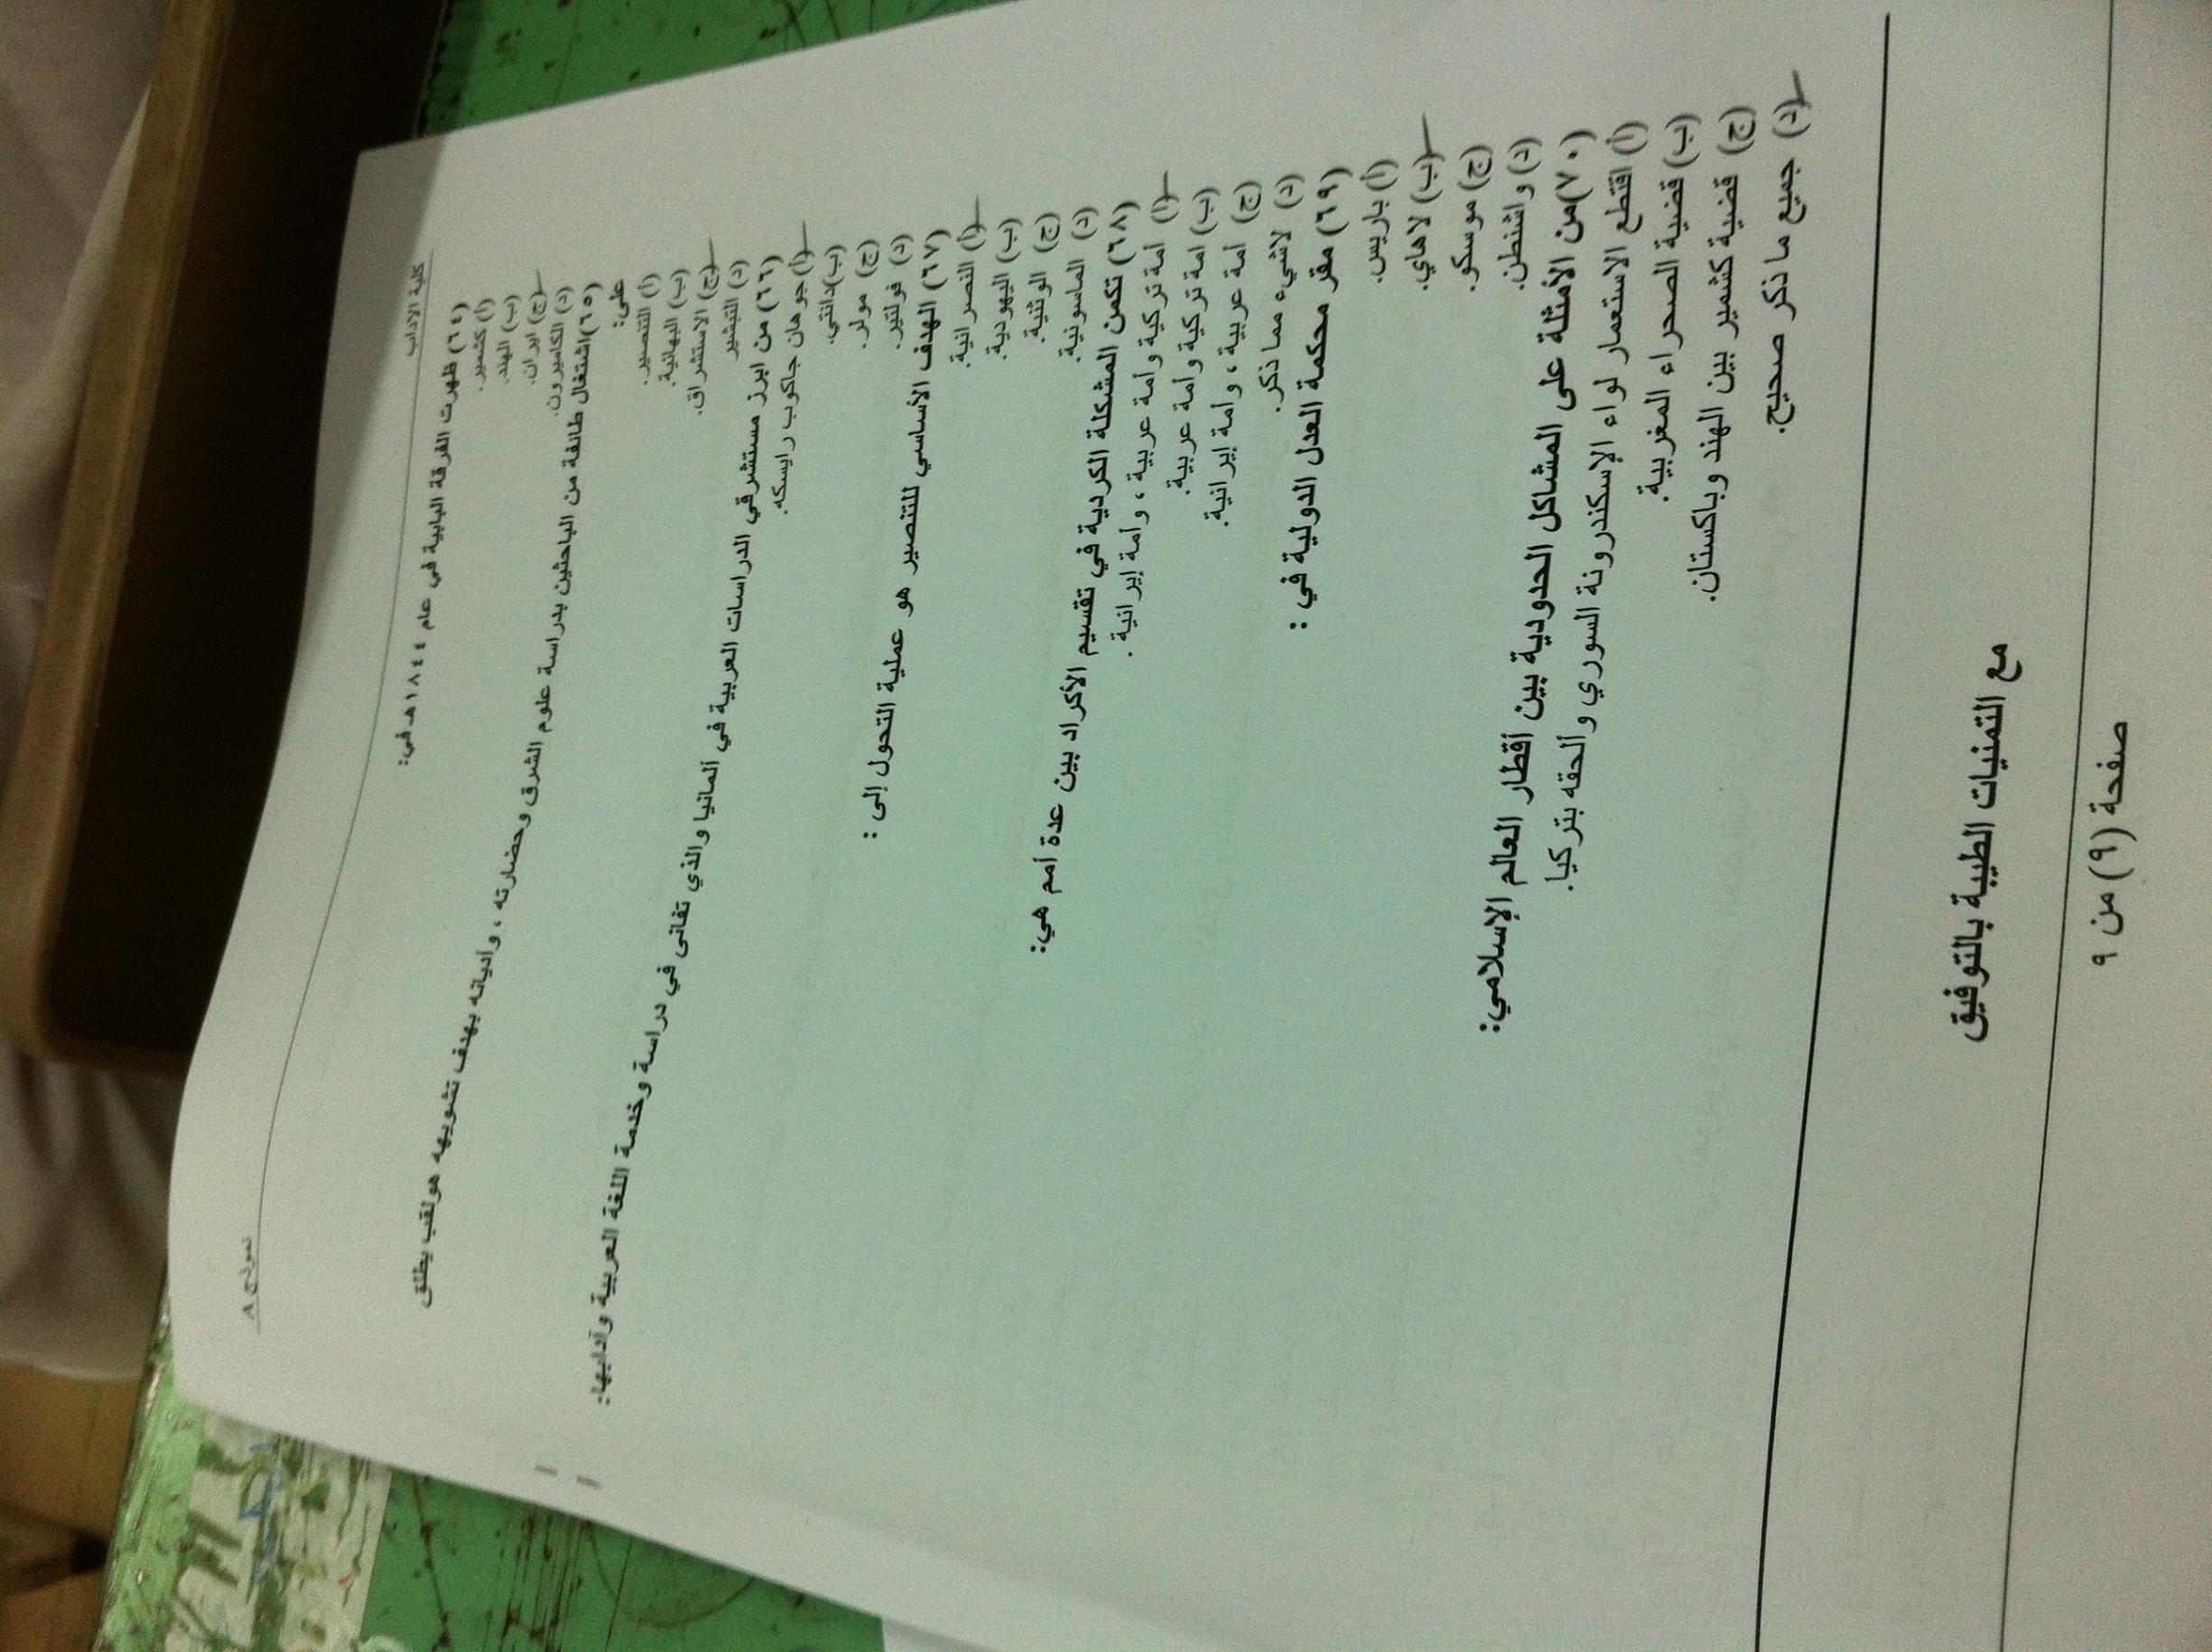 كلية الآداب
نموذج A
(٦٤) ظهرت الفرقة البابية في عام ١٨٤٤هـ في:
(أ) كشمير.
(ب) الهند.
(ج) ايران.
(د) الكاميرون.
(٦٥)اشتغال طائفة من الباحثين بدراسة علوم الشرق وحضارته ، وأديانه بهدف تشويهه هو لقب يطلق
على:
(أ) التنصير.
(ب) البهائية.
(ج) الاستشراق.
(د) التبشير
(٦٦) من ابرز مستشرقي الدراسات العربية في ألمانيا والذي تفانى في دراسة وخدمة اللغة العربية وآدابها:
(أ) جوهان جاكوب رايسكه.
(ب)دانتي.
(ج) مولر.
(د) فولتير.
(٦٧) الهدف الأساسي للتنصير هو عملية التحول إلى :
(أ) النصرانية.
(ب) اليهودية.
(ج) الوثنية.
(د) الماسونية.
(٦٨) تكمن المشكلة الكردية في تقسيم الأكراد بين عدة أمم هي:
(أ) أمة تركية وأمة عربية ، وأمة إيرانية .
(ب) امة تركية وأمة عربية.
(ج) أمة عربية ، وأمة إيرانية.
(د) لاشيء مما ذكر.
(٦٩) مقر محكمة العدل الدولية في :
(أ) باريس.
(ب) لاهاي.
(ج) موسكو.
(د) واشنطن.
(٧٠)من الأمثلة على المشاكل الحدودية بين أقطار العالم الإسلامي:
(أ) اقتطع الاستعمار لواء الإسكندرونة السوري وألحقه بتركيا.
(ب) قضية الصحراء المغربية.
(ج) قضية كشمير بين الهند وباكستان.
(د) جميع ما ذكر صحيح.
مع التمنيات الطيبة بالتوفيق
صفحة (٩) من ٩